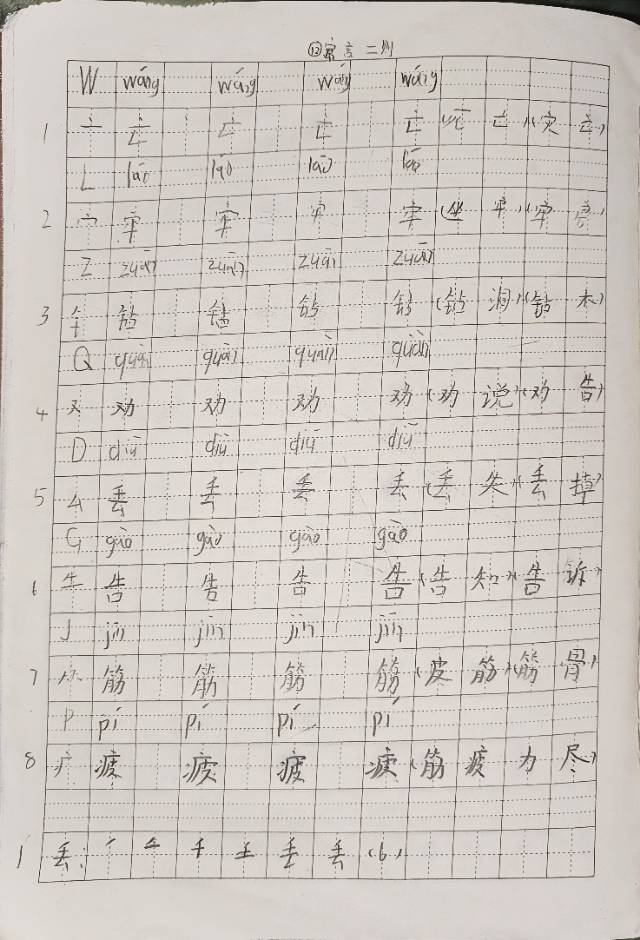 ⑫寓言二则
W wáng wáng wáng wáng
1 亠 亡 亡 亡 亡(死亡)(灾亡)
L láo láo láo láo
2 宀 牢 牢 牢 牢(坐牢)(牢房)
Z zuān zuān zuān zuān
3 钅 钻 钻 钻 钻(钻洞)(钻木)
Q quàn quàn quàn quàn
4 又 劝 劝 劝 劝(劝说)(劝告)
D diū diū diū diū
5 厶 丢 丢 丢 丢(丢失)(丢掉)
G gào gào gào gào
6 告 告 告 告(告知)(告诉)
J jīn jīn jīn jīn
7 筋 筋 筋 筋(皮筋)(筋骨)
P pí pí pí pí
8 疒 疲 疲 疲 疲(筋疲力尽)
1 丢: (6)